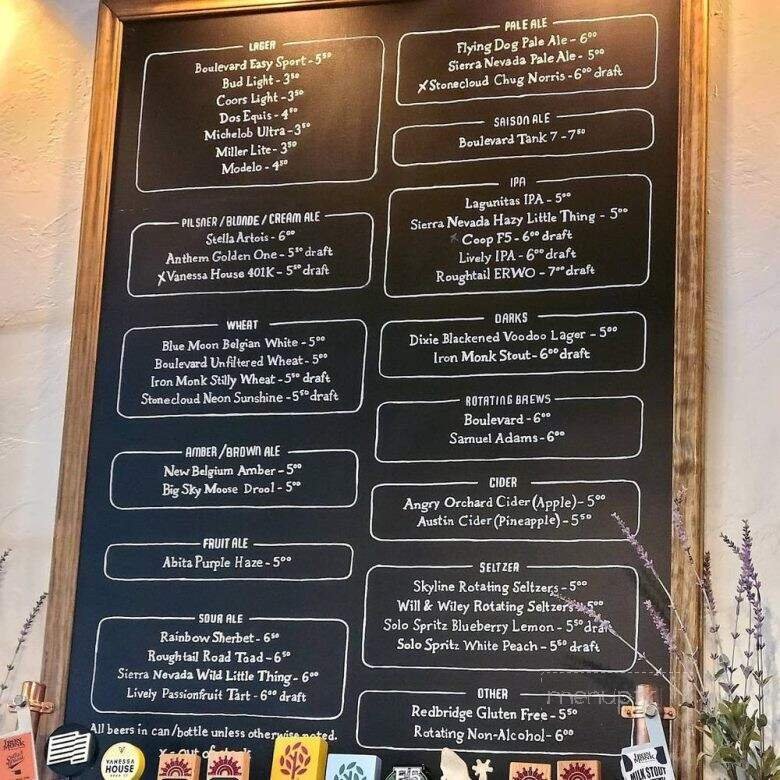 LAGER
Boulevard Easy Sport - 5⁵⁰
Bud Light - 3⁵⁰
Coors Light - 3⁵⁰
Dos Equis - 4⁵⁰
Michelob Ultra - 3⁵⁰
Miller Lite - 3⁵⁰
Modelo - 4⁵⁰
PILSNER / BLONDE / CREAM ALE
Stella Artois - 6⁰⁰
Anthem Golden One - 5⁵⁰ draft
x Vanessa House 401K - 5⁵⁰ draft
WHEAT
Blue Moon Belgian White - 5⁰⁰
Boulevard Unfiltered Wheat - 5⁰⁰
Iron Monk Stilly Wheat - 5⁵⁰ draft
Stonecloud Neon Sunshine - 5⁵⁰ draft
AMBER / BROWN ALE
New Belgium Amber - 5⁰⁰
Big Sky Moose Drool - 5⁰⁰
FRUIT ALE
Abita Purple Haze - 5⁰⁰
SOUR ALE
Rainbow Sherbet - 6⁵⁰
Roughtail Road Toad - 6⁵⁰
Sierra Nevada Wild Little Thing - 6⁰⁰
Lively Passionfruit Tart - 6⁰⁰ draft
All beers in can/bottle unless otherwise noted.
x - out of
PALE ALE
Flying Dog Pale Ale - 6⁰⁰
Sierra Nevada Pale Ale - 5⁰⁰
x Stonecloud Chug Norris - 6⁰⁰ draft
SAISON ALE
Boulevard Tank 7 - 7⁵⁰
IPA
Lagunitas IPA - 5⁰⁰
Sierra Nevada Hazy Little Thing - 5⁰⁰
x Coop F5 - 6⁰⁰ draft
Lively IPA - 6⁰⁰ draft
Roughtail ERWO - 7⁰⁰ draft
DARKS
Dixie Blackened Voodoo Lager - 5⁰⁰
Iron Monk Stout - 6⁰⁰ draft
ROTATING BREWS
Boulevard - 6⁰⁰
Samuel Adams - 6⁰⁰
CIDER
Angry Orchard Cider (Apple) - 5⁰⁰
Austin Cider (Pineapple) - 5⁵⁰
SELTZER
Skyline Rotating Seltzers - 5⁰⁰
Will & Wiley Rotating Seltzers - 5⁰⁰
Solo Spritz Blueberry Lemon - 5⁵⁰ draft
Solo Spritz White Peach - 5⁵⁰ draft
OTHER
Redbridge Gluten Free - 5⁵⁰
Rotating Non-Alcohol - 6⁰⁰
menupix
VANESSA
HOUSE
F5
MILK STOUT